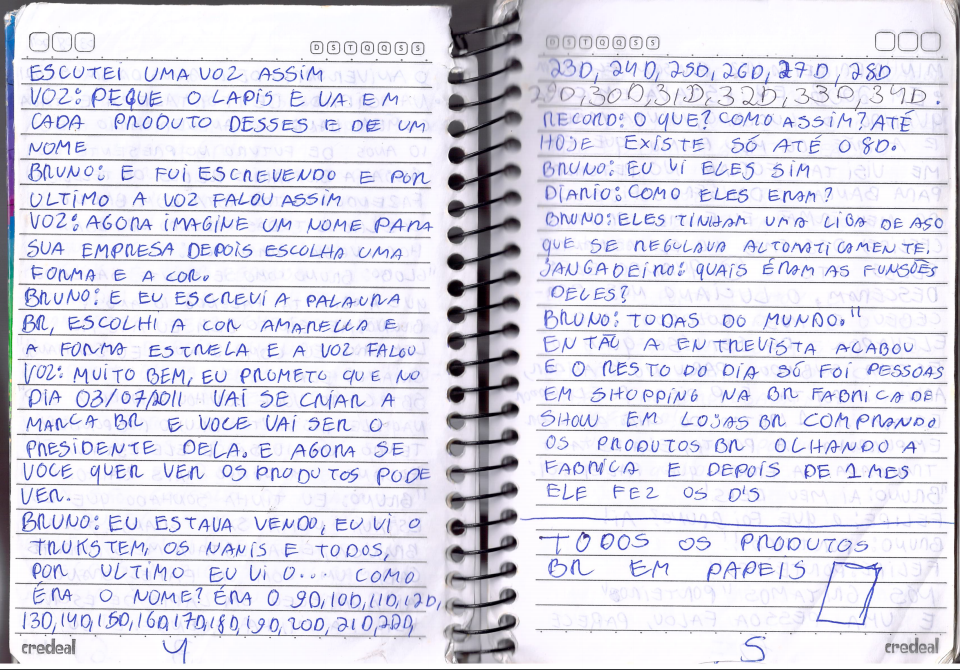 D S T Q Q S S
ESCUTEI UMA VOZ ASSIM
VOZ: PEQUE O LAPIS E VA EM
CADA PRODUTO DESSES E DE UM
NOME
BRUNO: E FUI ESCREVENDO E POR
ULTIMO A VOZ FALOU ASSIM
VOZ: AGORA IMAGINE UM NOME PARA
SUA EMPRESA DEPOIS ESCOLHA UMA
FORMA E A COR.
BRUNO: E EU ESCREVI A PALAVRA
BR, ESCOLHI A COR AMARELLA E
A FORMA ESTRELA E A VOZ FALOU
VOZ: MUITO BEM, EU PROMETO QUE NO
DIA 03/07/2011 VAI SE CRIAR A
MARCA BR E VOCE VAI SER O
PRESIDENTE DELA. E AGORA SE
VOCE QUER VER OS PRODUTOS PODE
VER.
BRUNO: EU ESTAVA VENDO, EU VI O
TRUKSTEM, OS NANIS E TODOS,
POR ULTIMO EU VI O... COMO
ÉRA O NOME? ÉRA O 9D, 10D, 11D, 12D,
13D, 14D, 15D, 16D, 17D, 18D, 19D, 20D, 21D, 22D,
credeal
4
D S T Q Q S S
23D, 24D, 25D, 26D, 27D, 28D
29D, 30D, 31D, 32D, 33D, 34D.
RECORD: O QUE? COMO ASSIM? ATÉ
HOJE EXISTE SÓ ATÉ O 8D.
BRUNO: EU VI ELES SIM
DIARIO: COMO ELES ERAM?
BRUNO: ELES TINHAM UMA LIGA DE ASO
QUE SE REGULAVA ALTOMATICAMENTE.
JANGADEIRO: QUAIS ÉRAM AS FUNSÕES
DELES?
BRUNO: TODAS DO MUNDO."
ENTÃO A ENTREVISTA ACABOU
E O RESTO DO DIA SÓ FOI PESSOAS
EM SHOPPING NA BR FABRICA DE
SHOW EM LOJAS BR COMPRANDO
OS PRODUTOS BR OLHANDO A
FABRICA E DEPOIS DE 1 MES
ELE FEZ OS D'S
TODOS OS PRODUTOS
BR EM PAPEIS
credeal
5